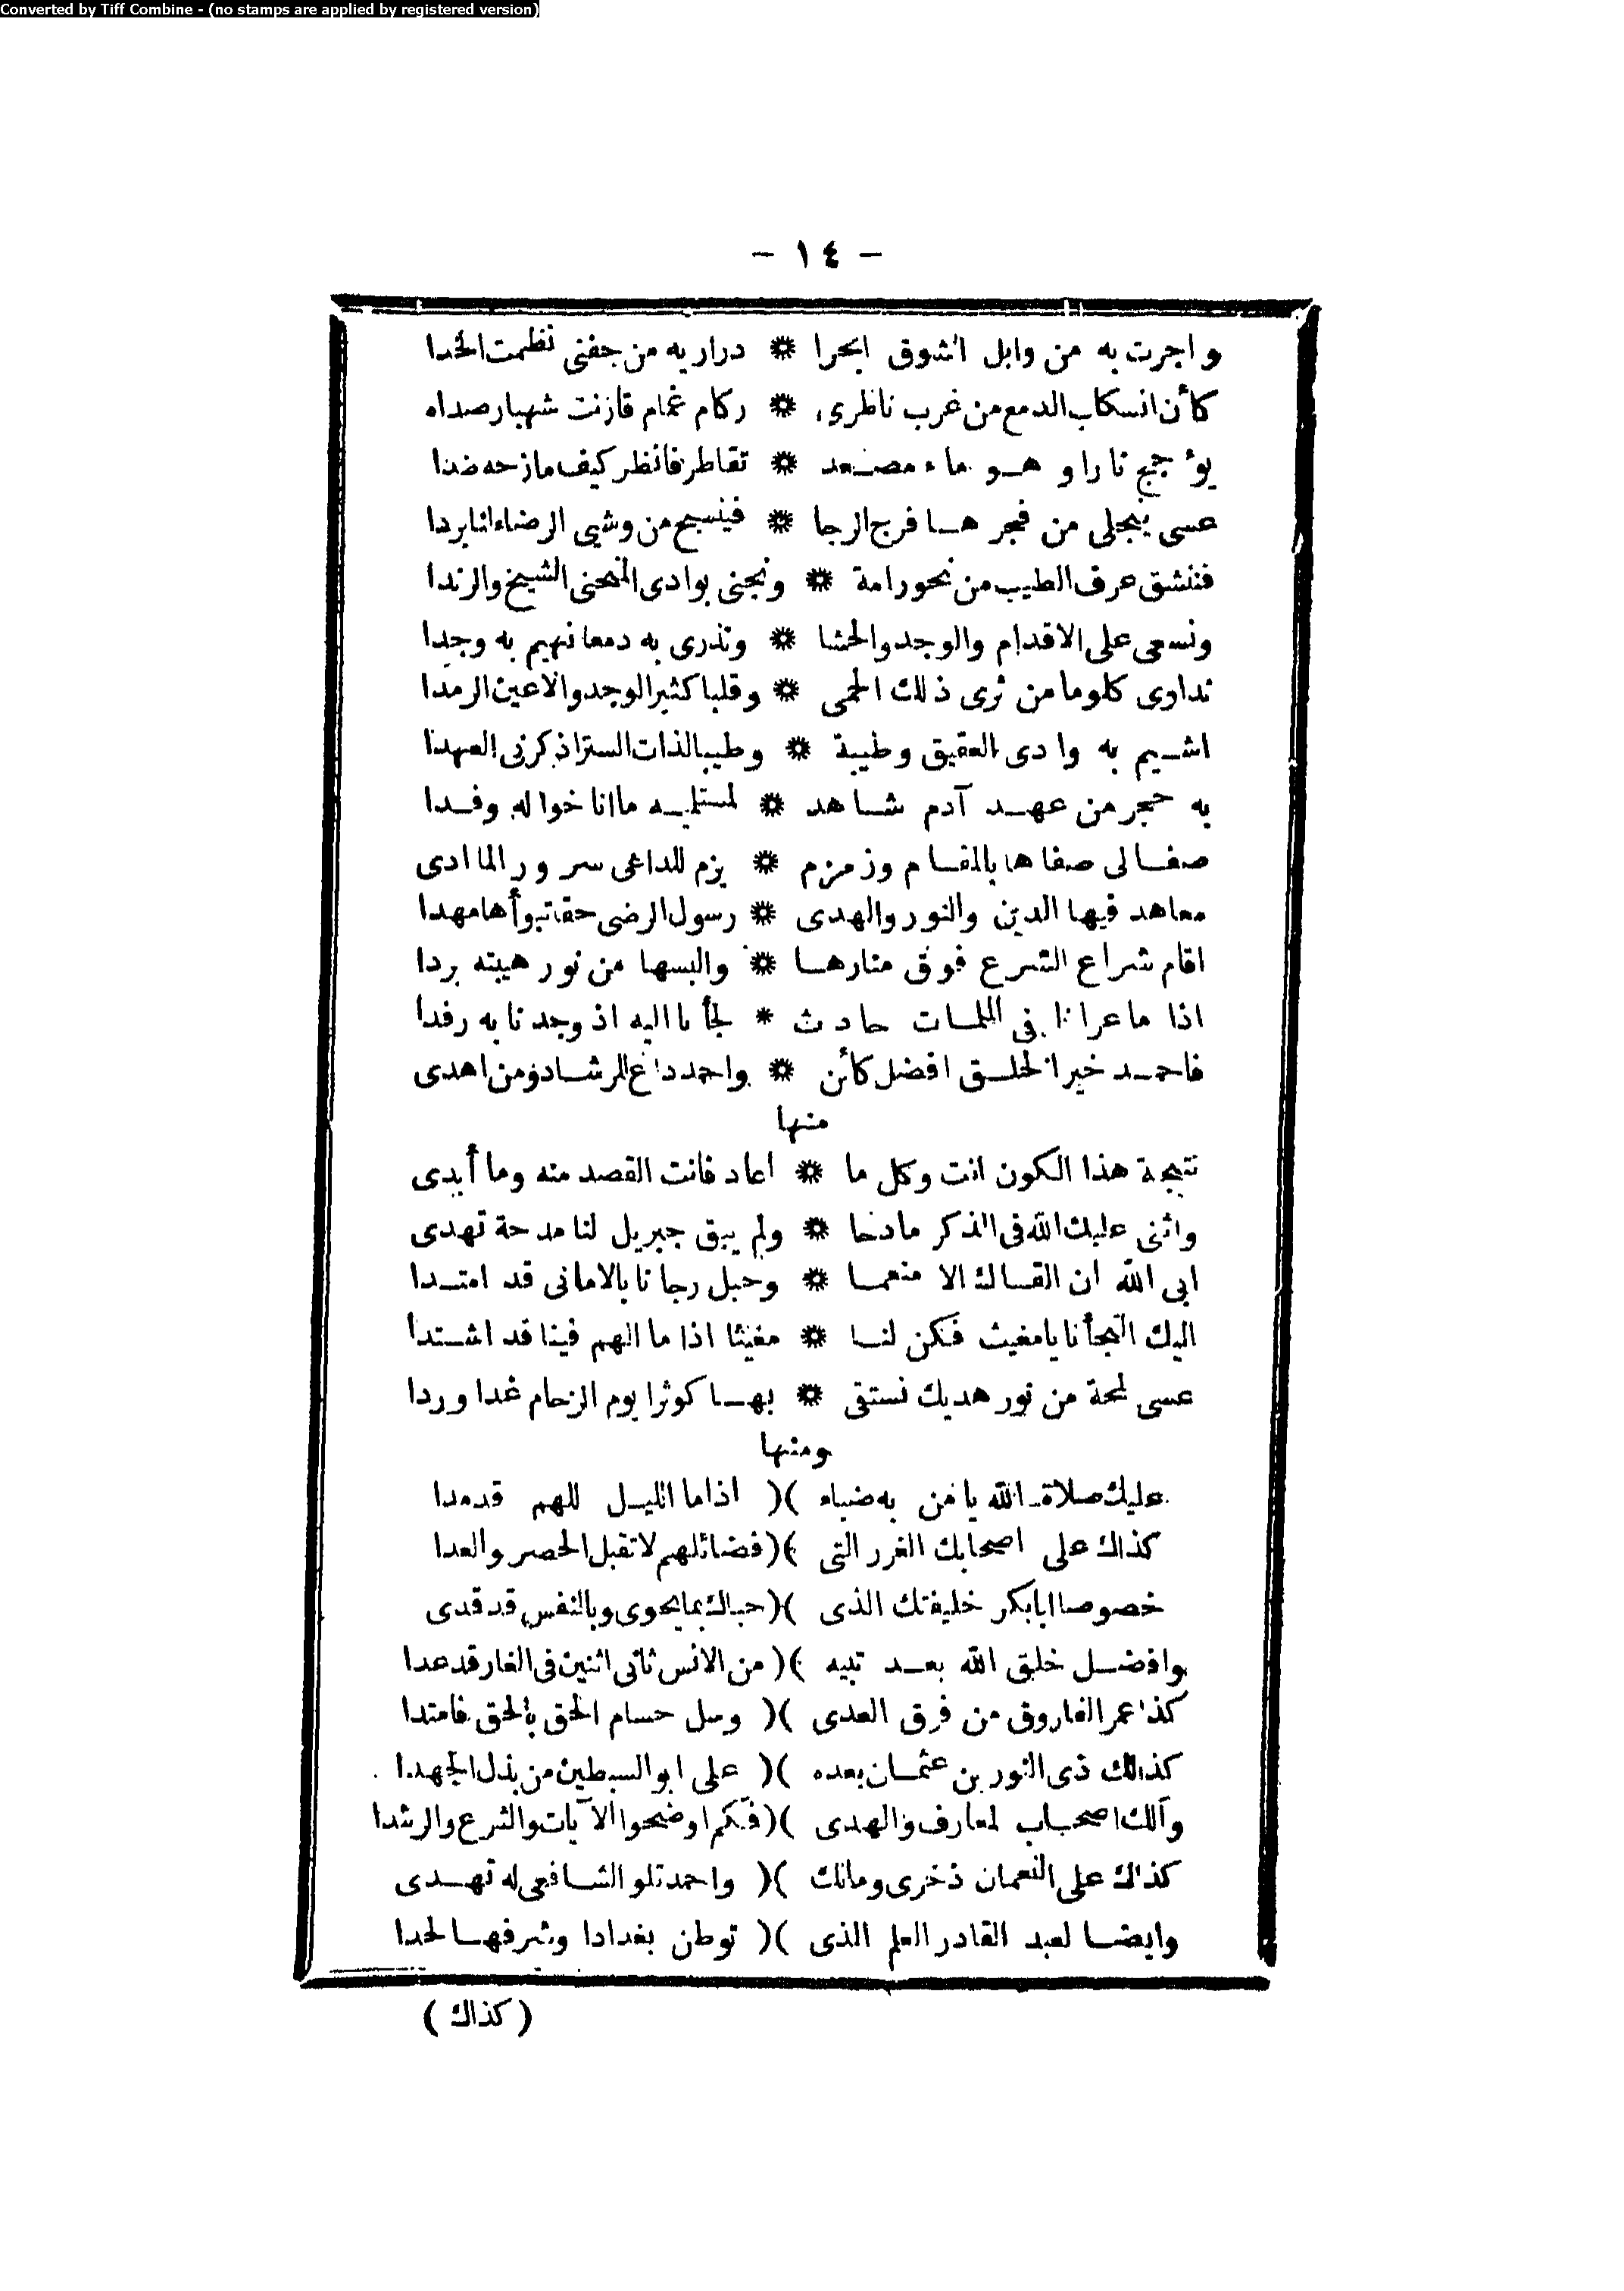 Converted by Tiff Combine - (no stamps are applied by registered version)
- ١٤ -
واجرت به من وابل الشوق ابحرا * دراريه من جفنى نظمت الخدا
كأن انسكاب الدمع من غرب ناظرى * ركام غمام قازنت شهبا رصداه
يؤجج نارا وهو ماء مصعد * تقاطر فانظر كيف مازحه ضدا
عسى ينجلى من فجرها فرج الرجا * فينسج من وشى الرضاء لنا بردا
فننشق عرف الطيب من نحو رامة * ونجنى بوادى المنحنى الشيخ والرندا
ونسعى على الاقدام والوجد والحشا * ونذرى به دمعا نهيم به وجدا
نداوى كلوما من ثرى ذلك الحمى * وقلبا كثير الوجد والاعين الرمدا
اشيم به وادى العقيق وطيبة * وطيبا لذات الستر اذكرنى العهدا
به حجر من عهد آدم شاهد * لمستلميه ما اناخوا له وفدا
صفا لى صفاها بالمقام وزمزم * يزم للداعى سرور الما ادى
معاهد فيها الدين والنور والهدى * رسول الرضى حقا تبوأها مهدا
اقام شراع الشرع فوق منارها * والبسها من نور هيبته بردا
اذا ما عرانا فى الملمات حادث * لجأنا اليه اذ وجدنا به رفدا
فاحمد خير الخلق افضل كأن * واحمد داع للرشاد ومن اهدى
منها
نتيجة هذا الكون انت وكل ما * اعاد فانت القصد منه وما أبدى
واثنى عليك الله فى الذكر مادحا * ولم يبق جبريل لنا مدحة تهدى
ابى الله ان القاك الا منعما * وحبل رجانا بالامانى قد امتدا
اليك التجأنا يا مغيث فكن لنا * مغيثا اذا ما الهم فينا قد اشتدا
عسى لمحة من نور هديك نستقى * بها كوثرا يوم الزحام غدا وردا
ومنها
عليك صلاة الله يا من به ضياء )( اذا ما الليل للهم قد مدا
كذاك على اصحابك الغرر التى )( فضائلهم لا تقبل الحصر والعدا
خصوصا ابا بكر خليفتك الذى )( حباك بما يحوى وبالنفس قد فدى
وافضل خلق الله بعد نبيه )( من الانس ثانى اثنين فى الغار قد عدا
كذا عمر الفاروق من فرق العدى )( وسل حسام الحق بالحق فامتدا
كذلك ذى النورين عثمان بعده )( على ابو السبطين من بذل الجهدا
وآلك اصحاب لمعارف والهدى )( فكم اوضحوا الآيات والشرع والرشدا
كذاك على النعمان ذخرى ومالك )( واحمد تلو الشافعى له تهدى
وايضا لعبد القادر العلم الذى )( توطن بغدادا وشرفها لحدا
( كذاك )